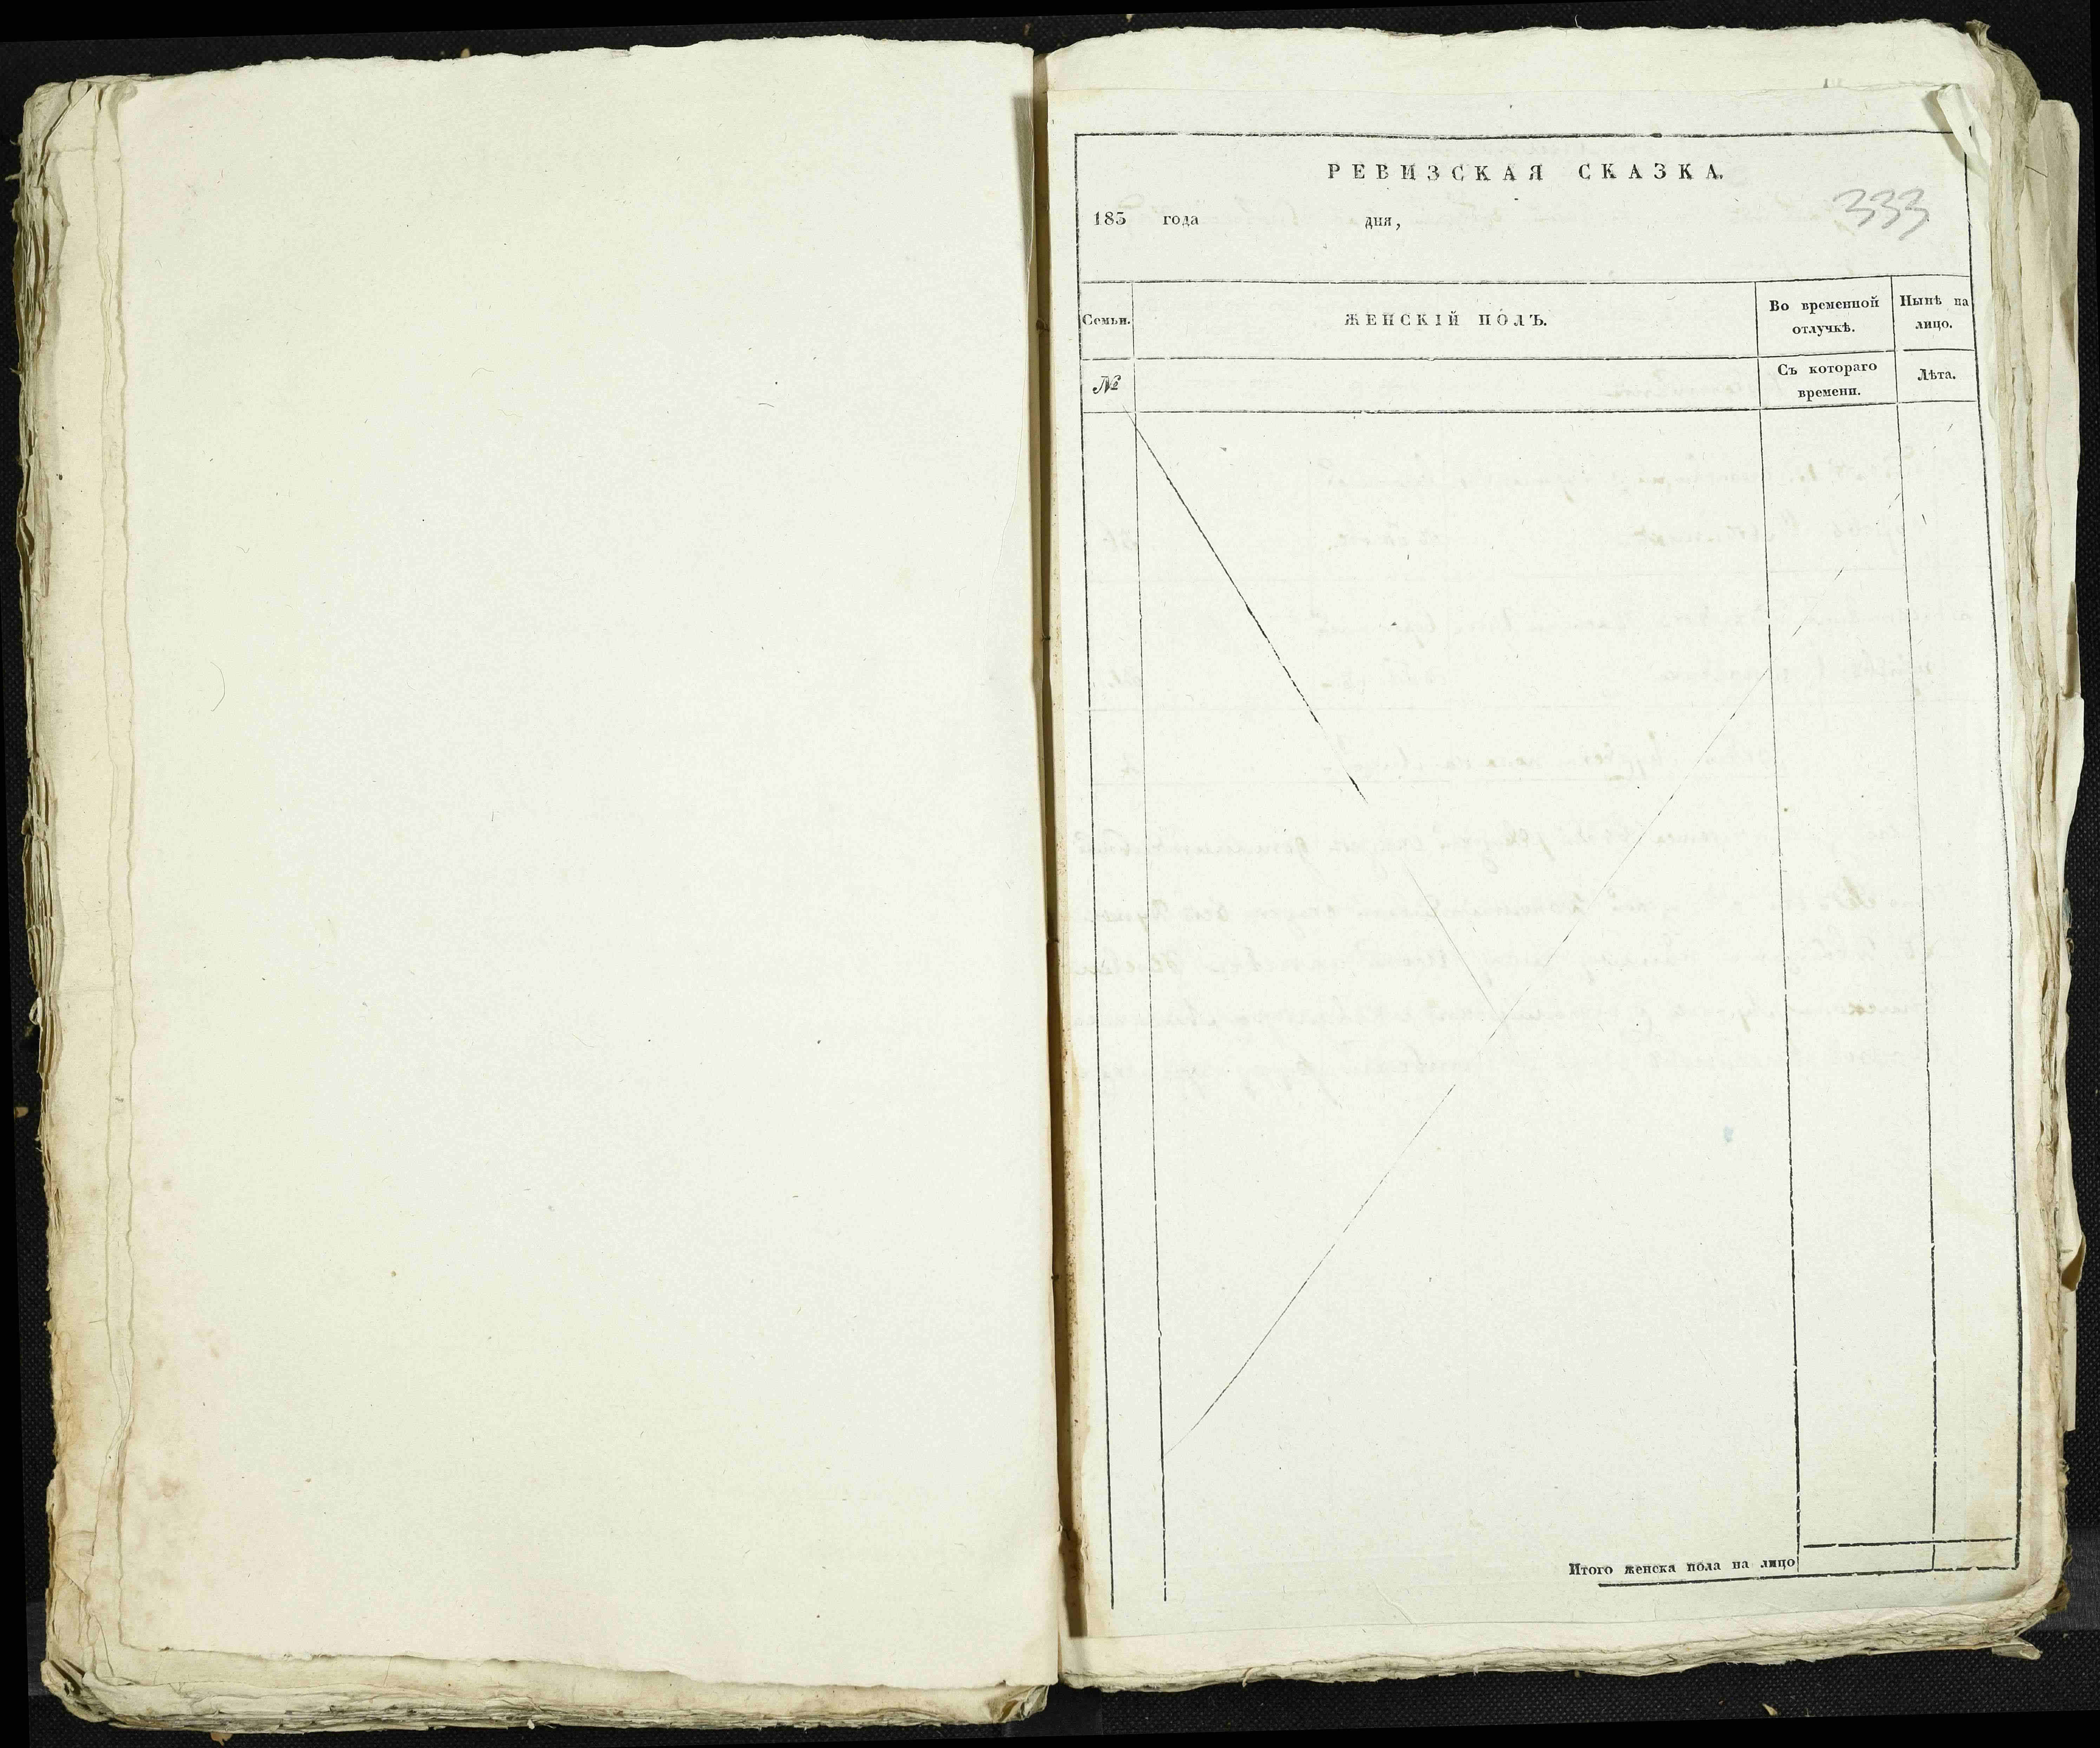 РЕВИЗСКАЯ СКАЗКА.
333
185 года дня,
Семьи.
ЖЕНСКІЙ ПОЛЪ.
Во временной
отлучкѣ.
Нынѣ на
лицо.
№
Съ котораго
времени.
Лѣта.
Итого женска пола на лицо